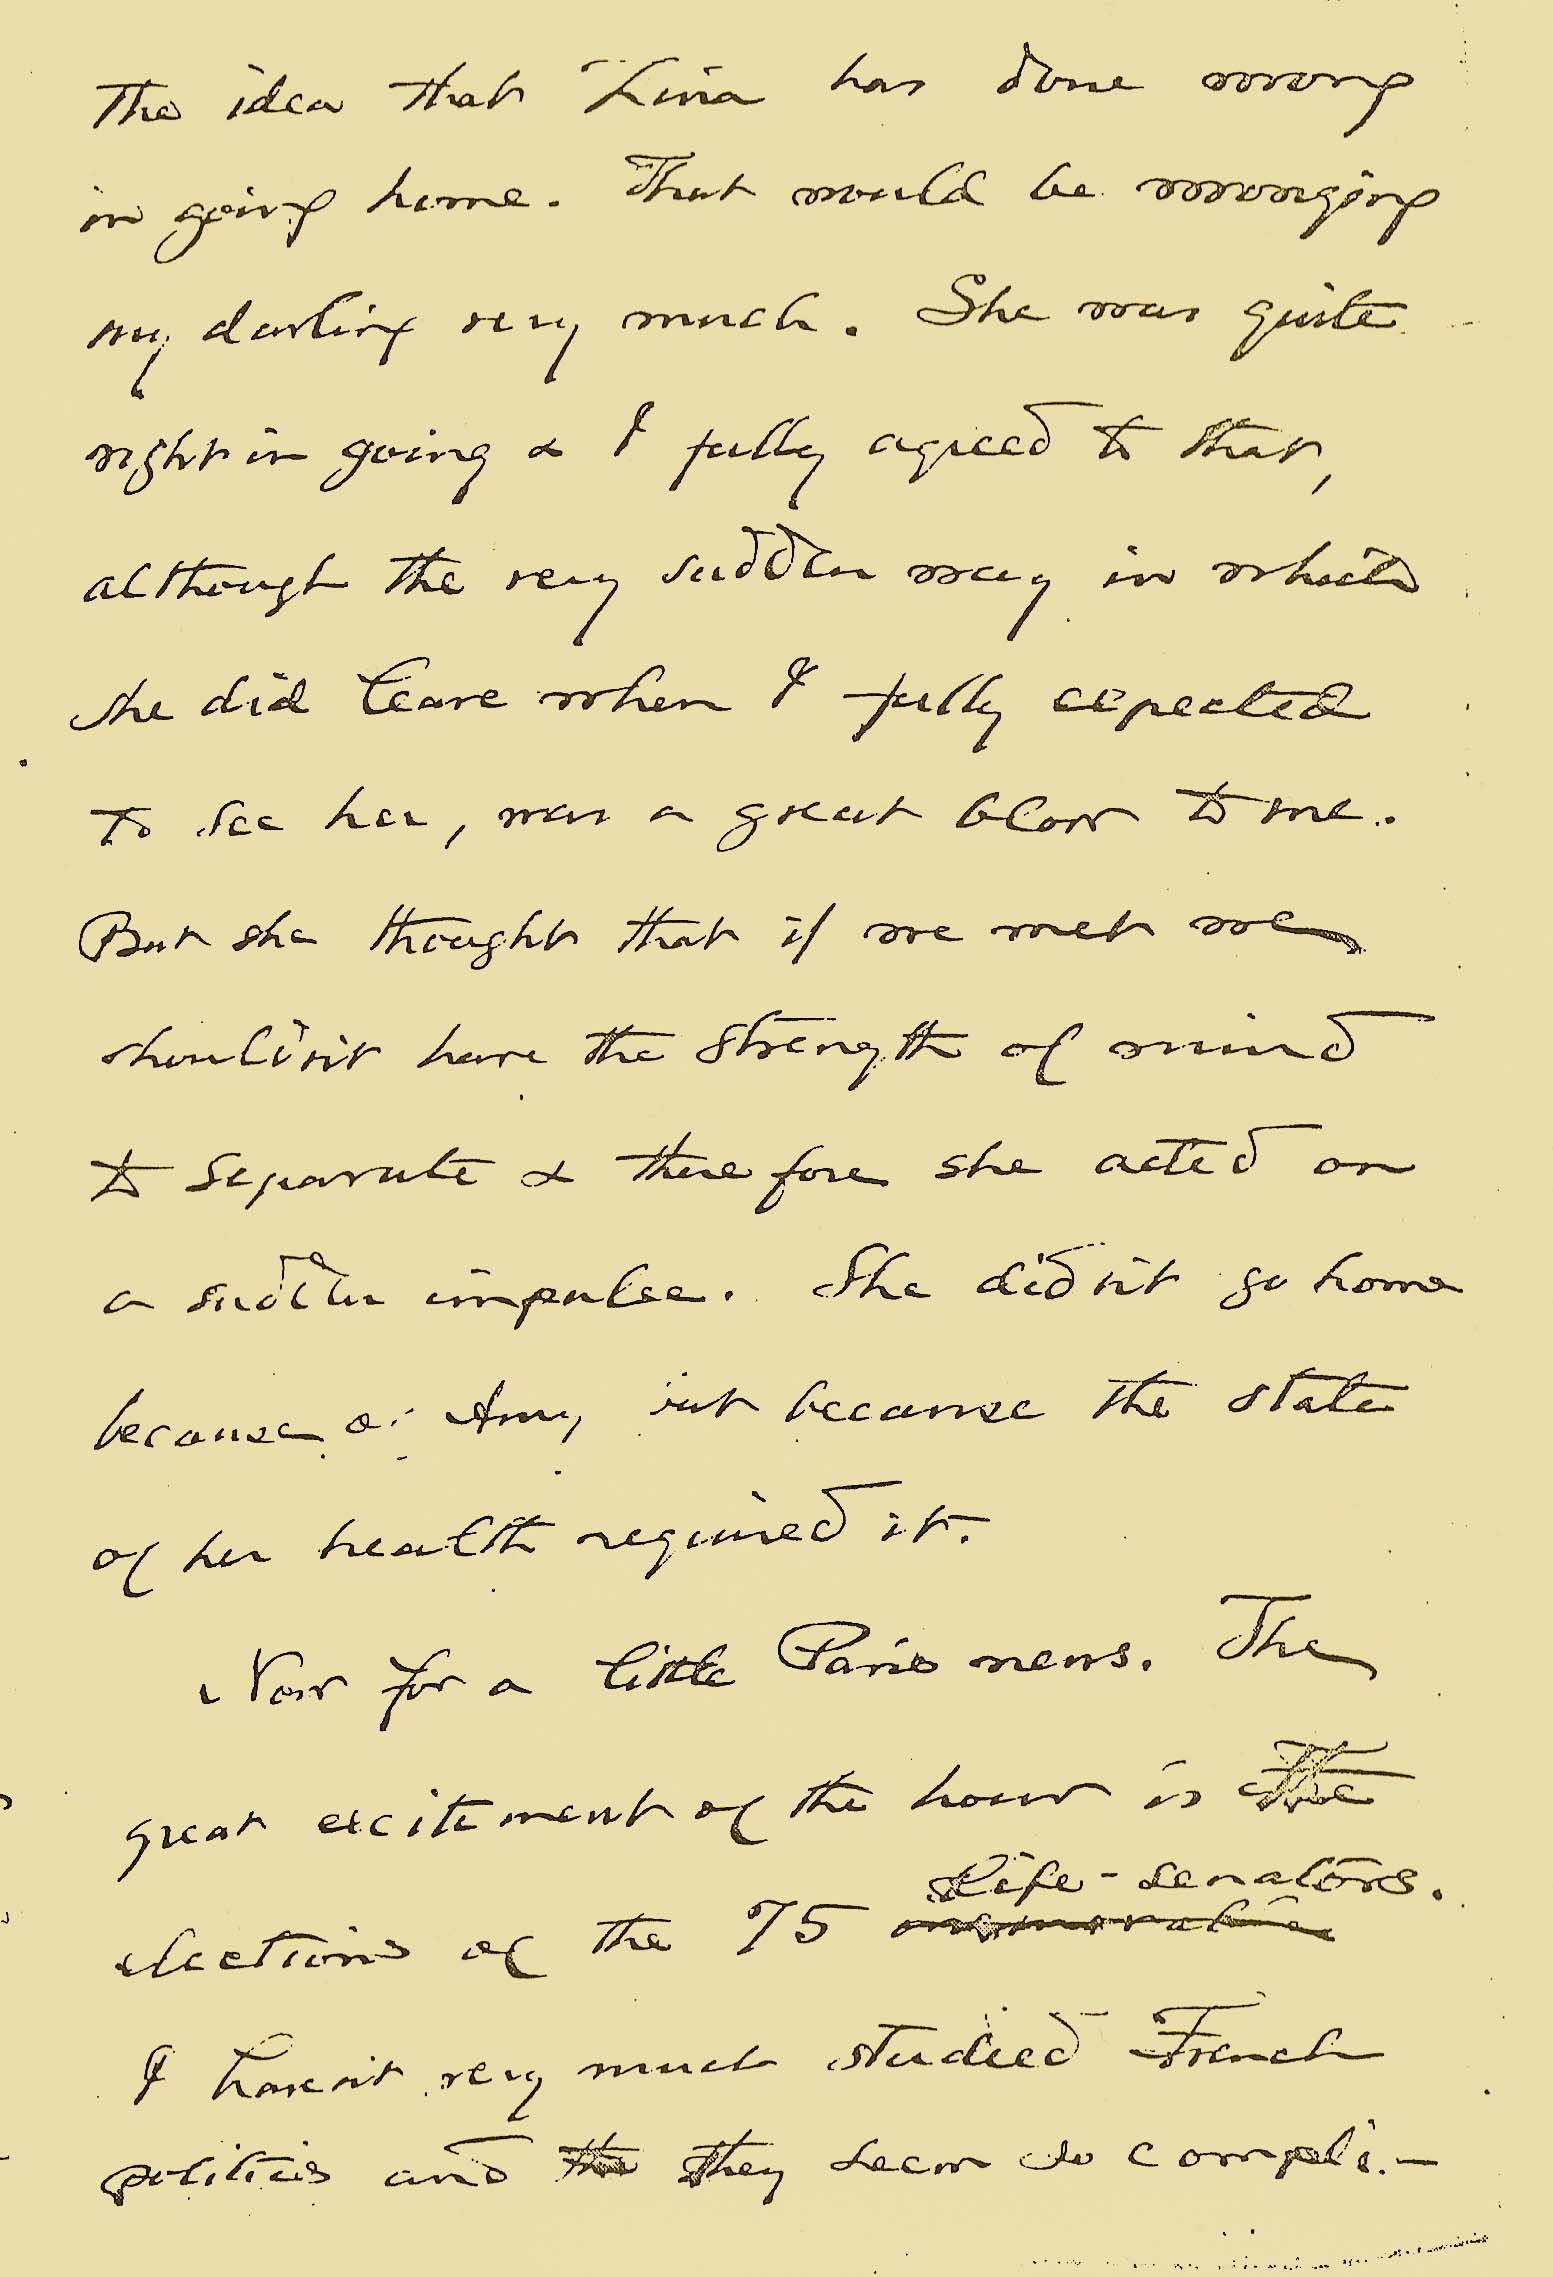 The idea that Lina has done wrong
in going home. That would be wronging
my darling very much. She was quite
right in going & I fully agreed to that,
although the very sudden way in which
she did leave when I fully expected
to see her, was a great blow to me.
But she thought that if we met we
shouldn't have the strength of mind
to separate & therefore she acted on
a sudden impulse. She didn't go home
because of Amy but because the state
of her health required it.
Now for a little Paris news. The
great excitement of the hour is the
Life-senators.
elections of the 75
I haven't very much studied French
politics and the they seem so compli-